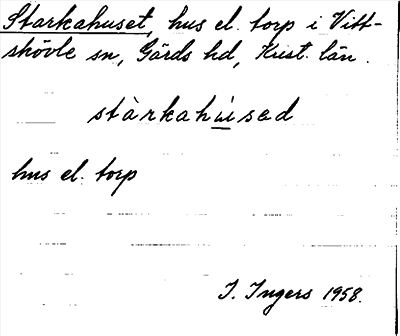 Starkahuset, hus el. torp i Vitt-
skövle sn, Gärds hd, Krist. län.
stàrkahú̲sed
hus el. torp
I. Ingers 1958.